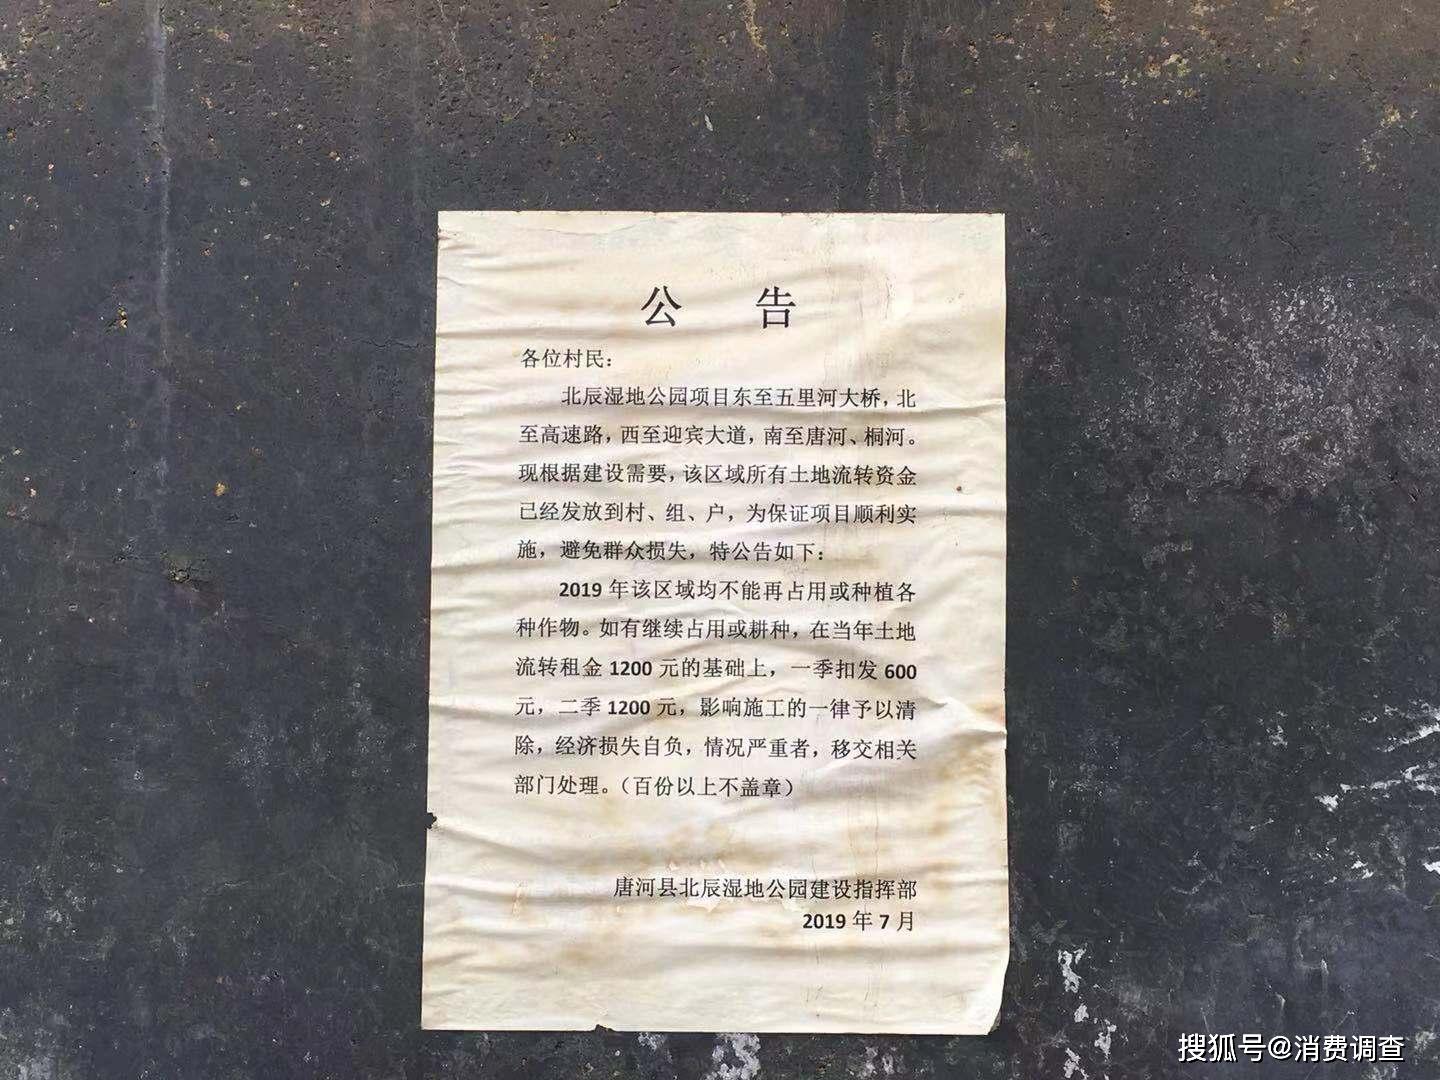 公 告
各位村民：
北辰湿地公园项目东至五里河大桥，北
至高速路，西至迎宾大道，南至唐河、桐河。
现根据建设需要，该区域所有土地流转资金
已经发放到村、组、户，为保证项目顺利实
施，避免群众损失，特公告如下：
2019 年该区域均不能再占用或种植各
种作物。如有继续占用或耕种，在当年土地
流转租金 1200 元的基础上，一季扣发 600
元，二季 1200 元，影响施工的一律予以清
除，经济损失自负，情况严重者，移交相关
部门处理。（百份以上不盖章）
唐河县北辰湿地公园建设指挥部
2019 年 7 月
搜狐号@消费调查